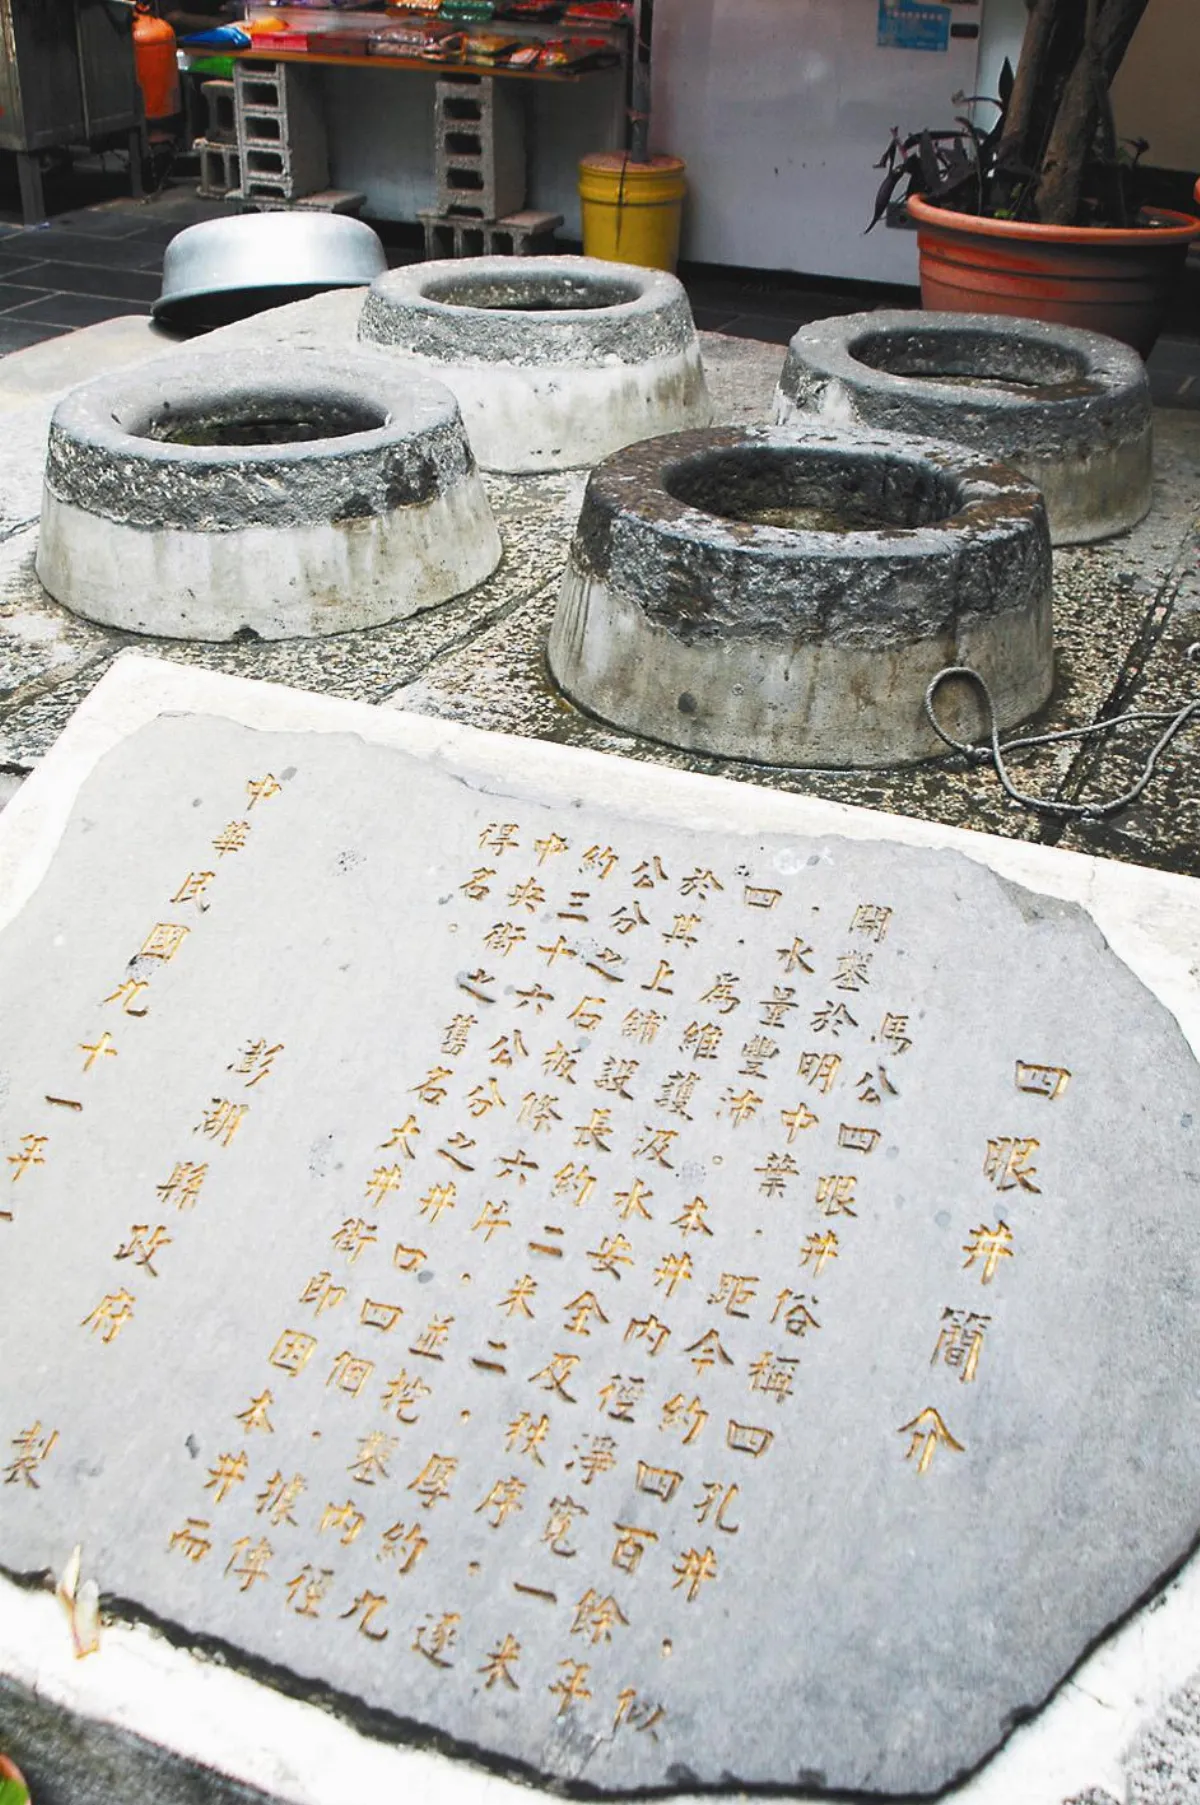 四眼井簡介
馬公四眼井俗稱四孔井，似
開鑿於明中葉，距今約四百餘年
，水量豐沛。本井內徑淨寬一米
四，為維護汲水安全及秩序，逐
於其上舖設長約二米二，厚約九
公分之石板條六片，並挖鑿內徑
約三十六公分之井口四個，據傳
中央街之舊名大井街即因本井而
得名。
澎湖縣政府 製
中華民國九十一年一